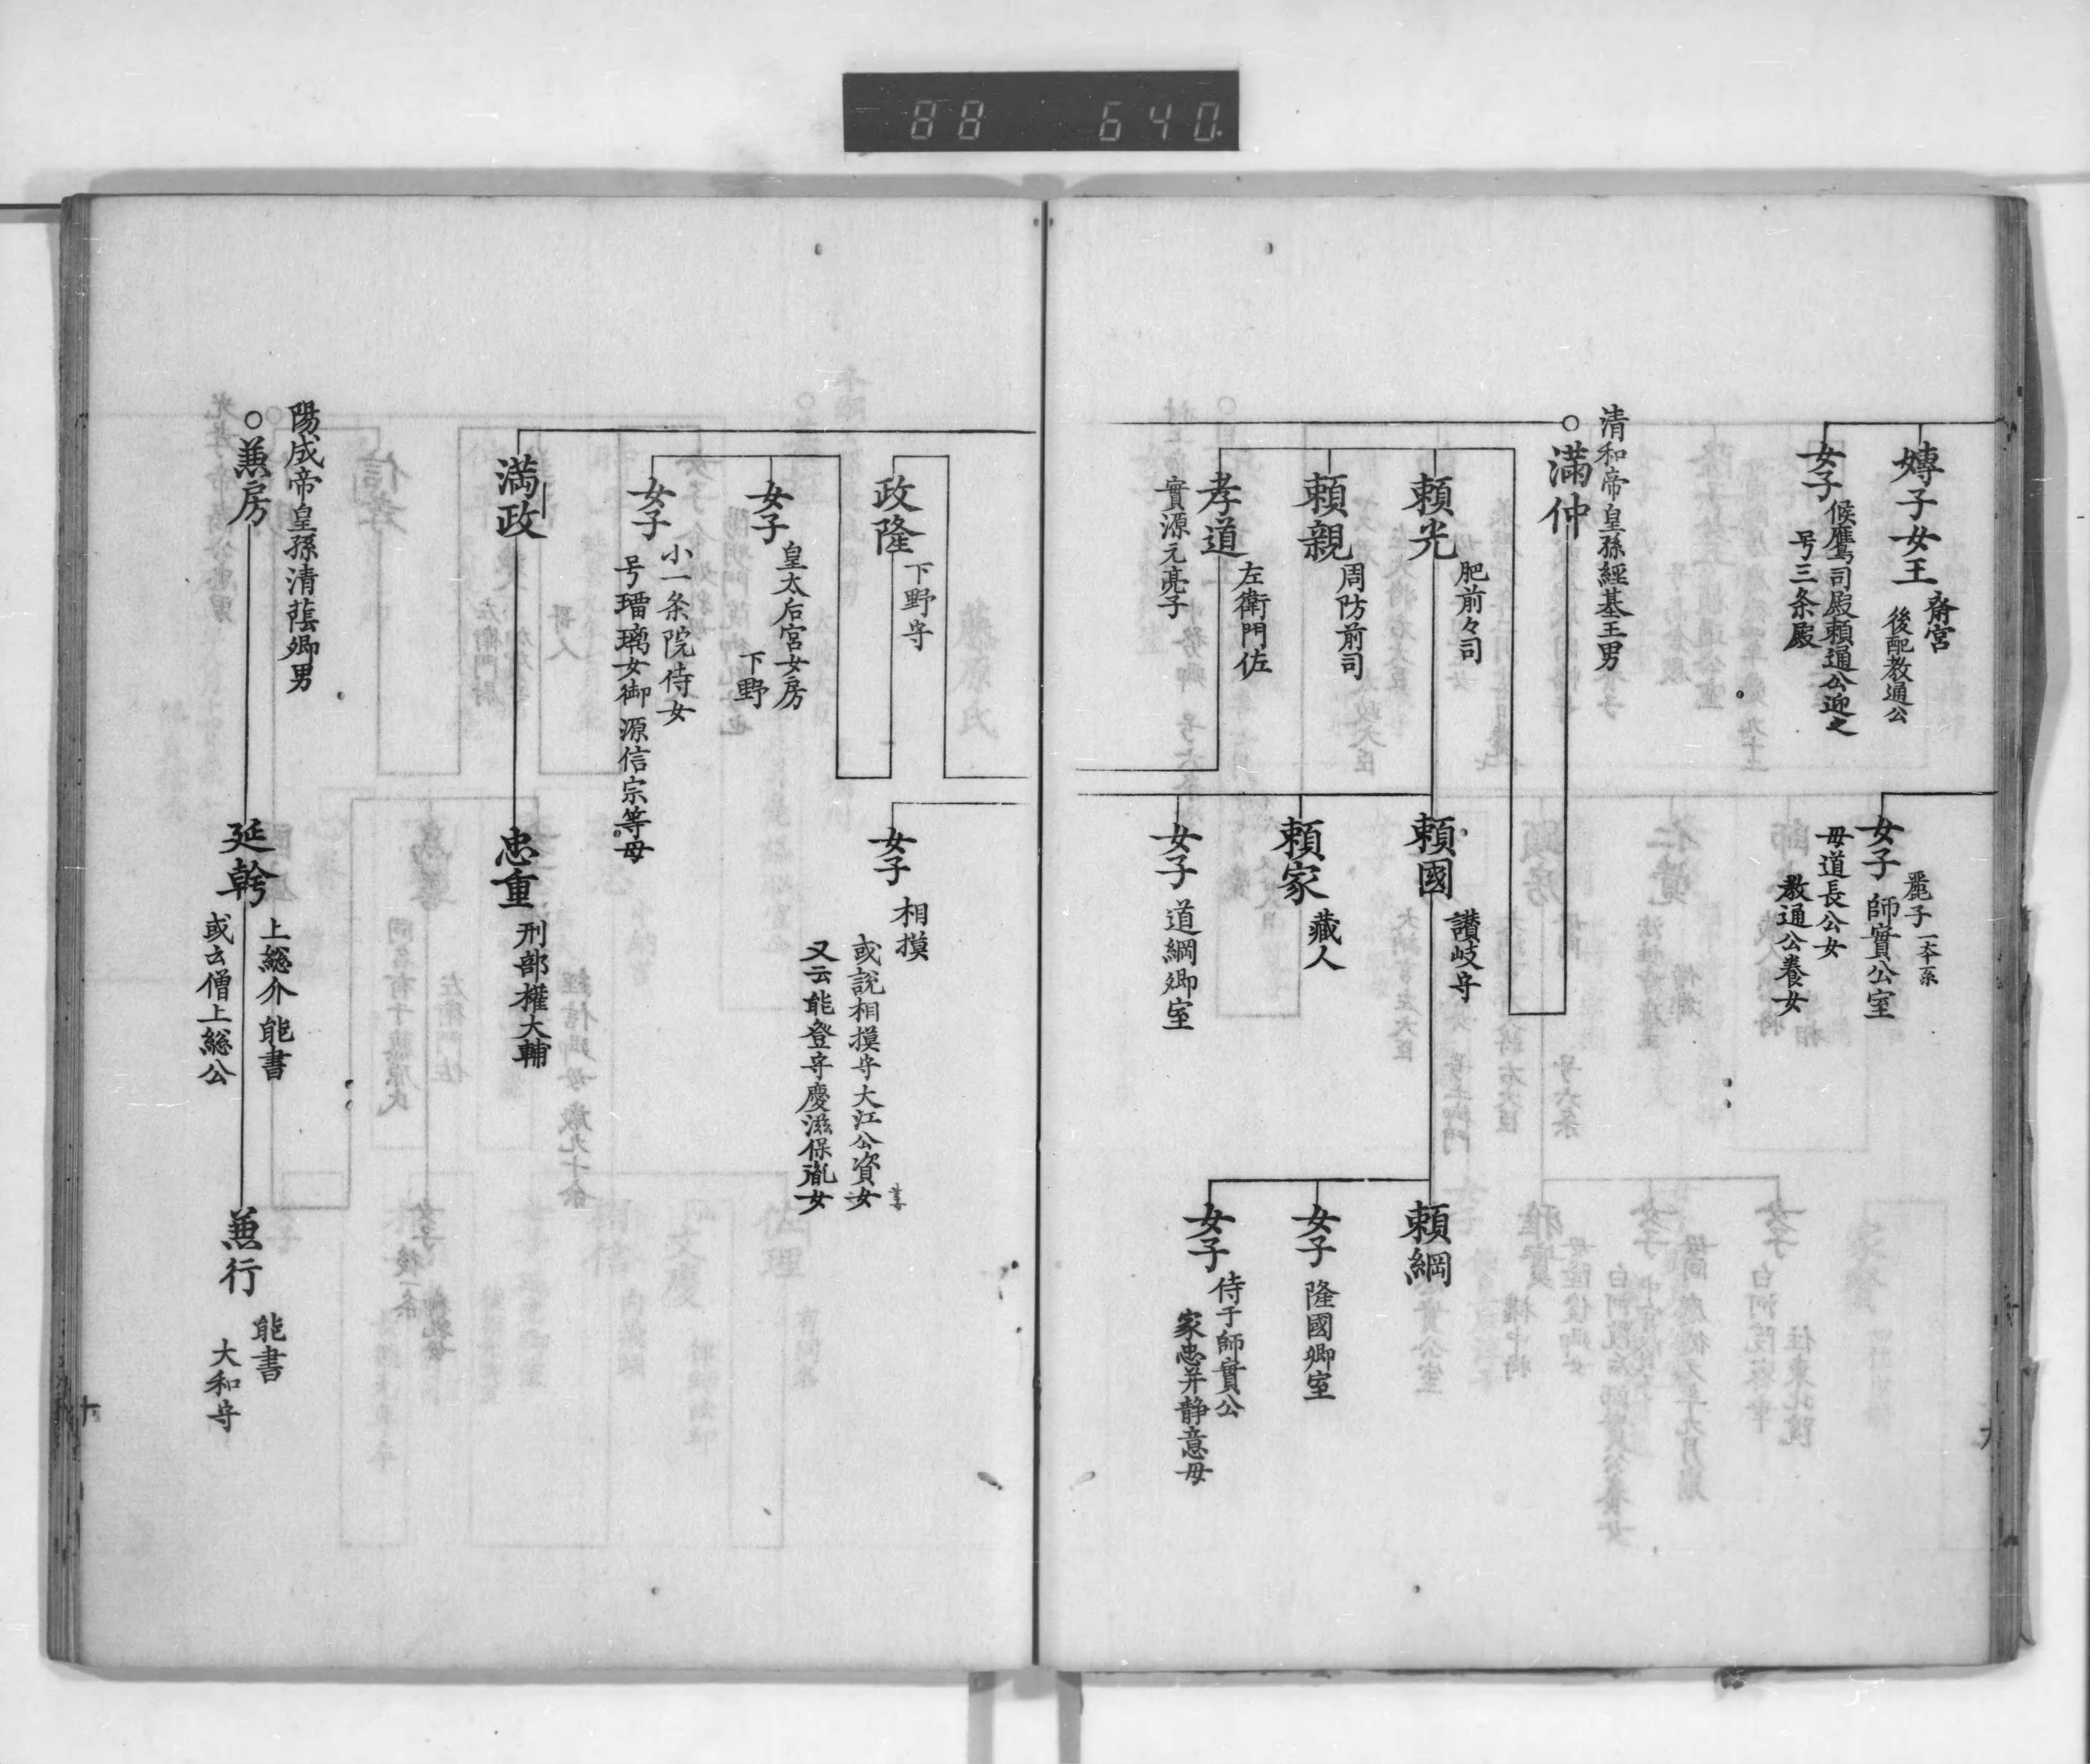 88 640
嫥子女王
齋宮
後配教通公
女子
候鷹司殿頼通公迎之
号三条殿
女子
麗子
師實公室
母道長公女
教通公養女
清和帝皇孫經基王男
○満仲
頼光
肥前々司
頼親
周防前司
孝道
左衛門佐
實源元亮子
頼國
讃岐守
頼家
藏人
女子
道綱卿室
頼綱
女子
隆國卿室
女子
侍于師實公
家忠并静意母
政隆
下野守
女子
皇太后宮女房
下野
女子
小一条院侍女
号瑠璃女御 源信宗等母
女子
相摸
或説相摸守大江公資女
又云能登守慶滋保胤女
満政
忠重
刑部權大輔
陽成帝皇孫清蔭卿男
○兼房
延幹
上総介 能書
或云僧上総公
兼行
能書
大和守
十